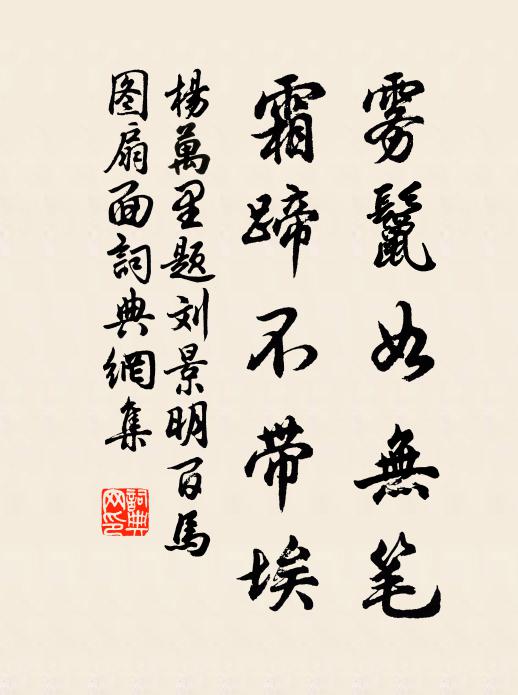 雾鬣如無笔
霜蹄不带埃
楊萬里题刘景明百馬
图扇面詞典網集
詞典
网印